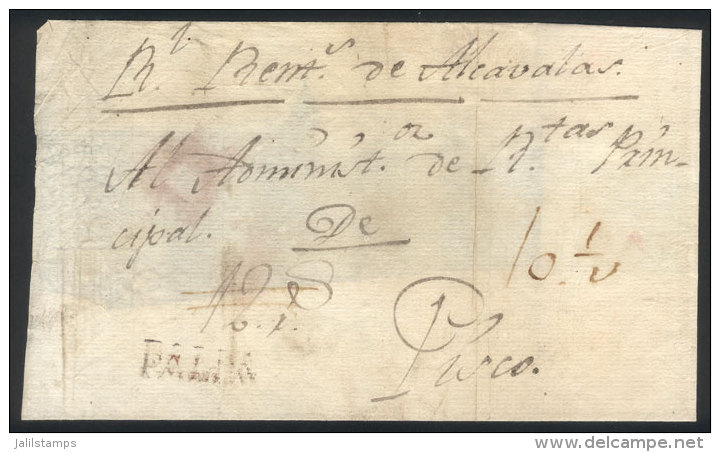 Rl. Rents. de Alcavalas.
Al Administ.or de R.tas Prin-
cipal. De
10 ½
Pisco.
jalilstamps
www.delcampe.net